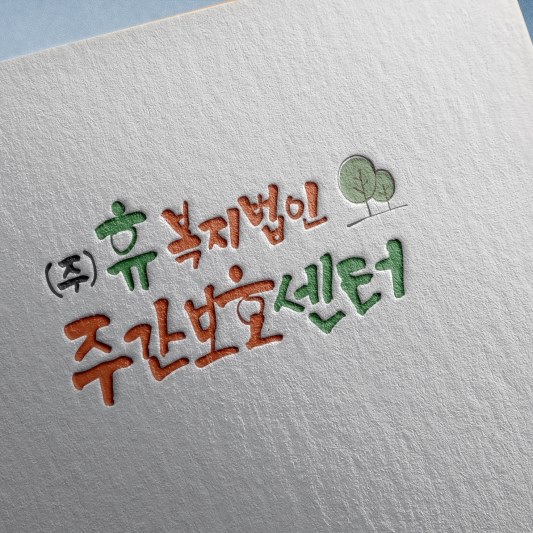 (주)휴 복지법인
주간보호센터